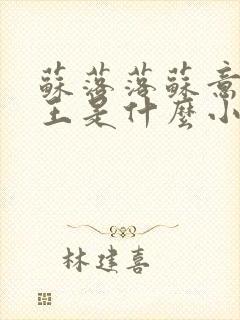 蘇落落蘇意
主是什麼小
林建喜